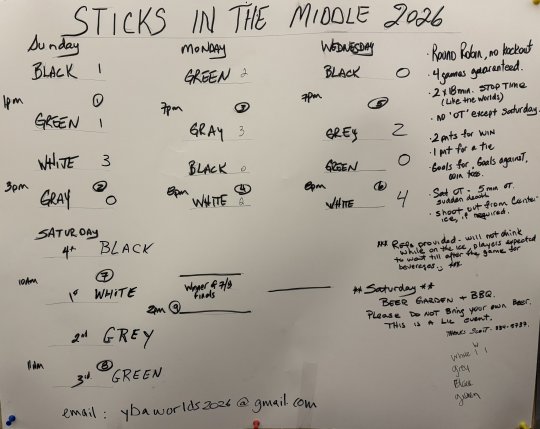 STICKS IN THE MIDDLE 2026
Sunday
BLACK 1
1pm ①
GREEN 1
WHITE 3
3pm ②
GRAY 0
MONDAY
GREEN 2
7pm ③
GRAY 3
BLACK 0
8pm ④
WHITE 2
WEDNESDAY
BLACK 0
7pm ⑤
GREY 2
GREEN 0
8pm ⑥
WHITE 4
· ROUND Robin, no knockout
· 4 games guaranteed.
· 2 x 18 min. STOP TIME
(Like the Worlds)
· no 'OT' except Saturday.
· 2 pnts for WIN
· 1 pnt for a tie
· Goals for, Goals against,
coin toss.
· Sat OT - 5 min OT.
sudden death
· shoot out from Center
ice, if required.
*** Refs provided - will not drink
while on the ice, players expected
to wait till after the game for
beverages. ***
** Saturday **
BEER GARDEN & BBQ.
PLEASE DO NOT BRING your own BEER.
THIS IS A LIC EVENT.
SATURDAY
4th BLACK
10am ⑦
1st WHITE
2nd GREY
11am ⑧
3rd GREEN
Winner of 7/8
finals
2pm ⑨
white
grey
Black
green
email: ybaworlds2026@gmail.com